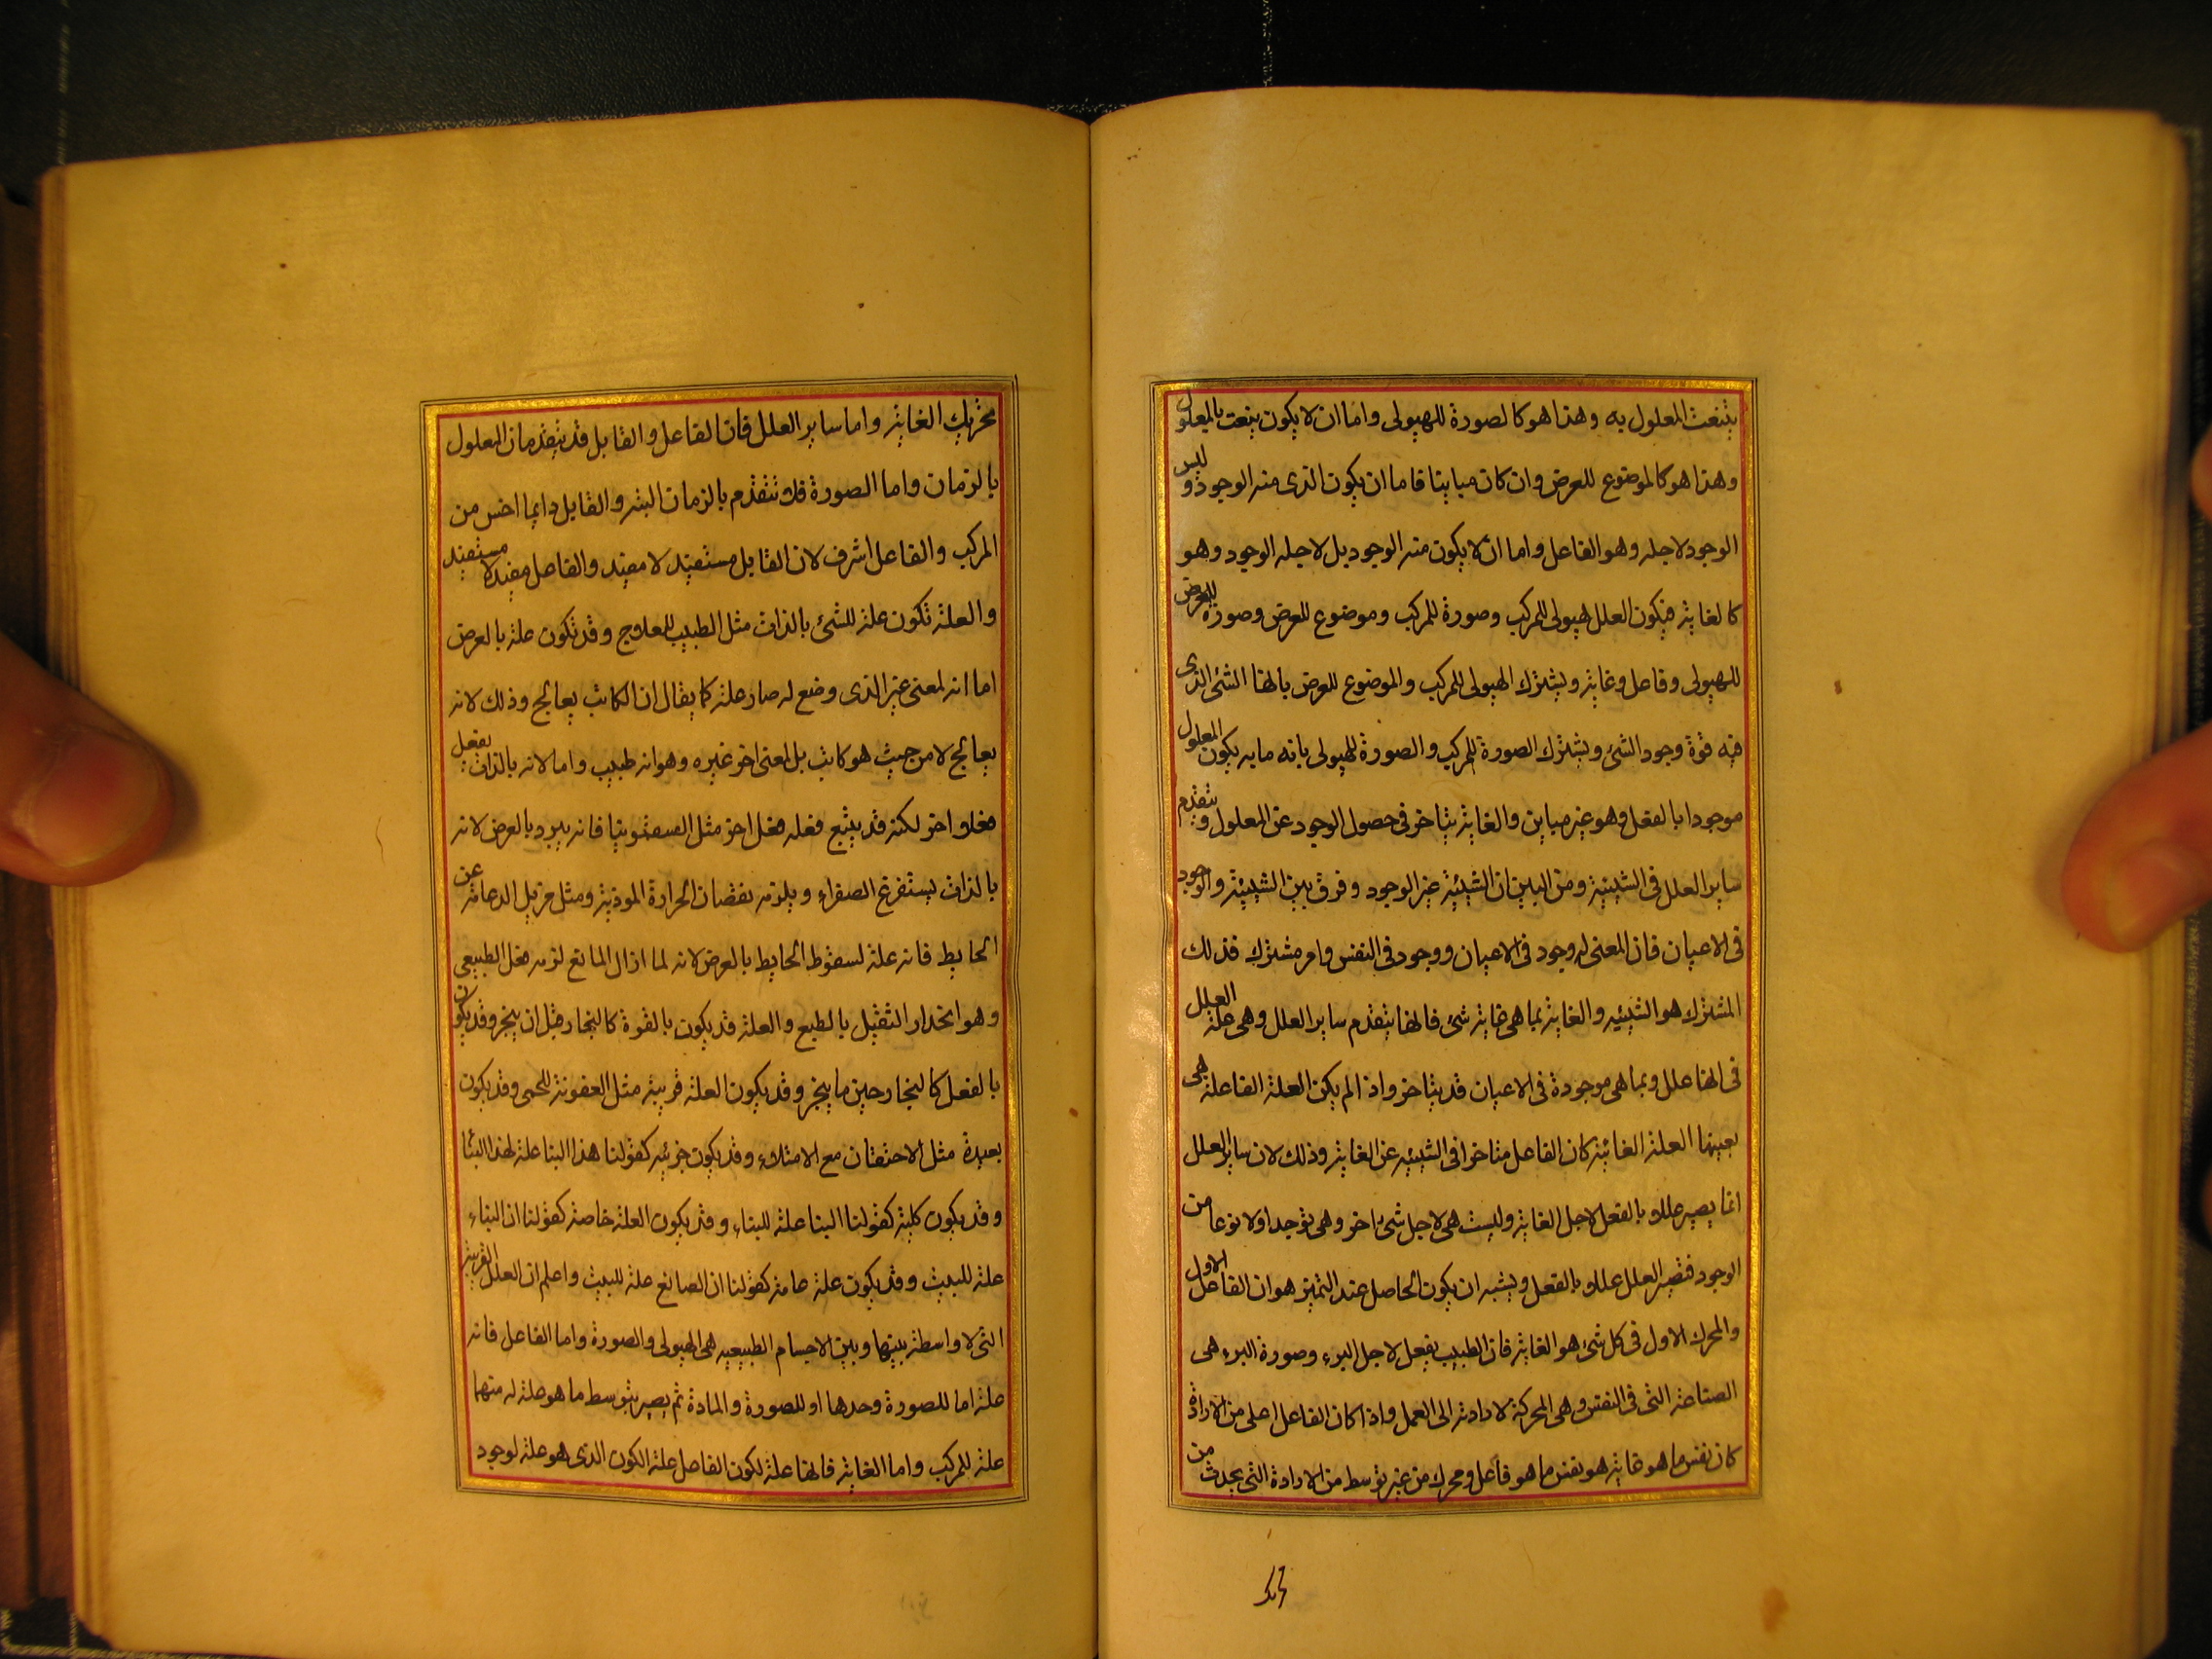 ينعت المعلول به وهذا هو كالصورة للهيولى واما ان لا يكون ينعت بالمعلول
وهذا هو كالموضوع للعرض وان كان مباينا فاما ان يكون الذى منه الوجود وليس
الوجود لاجله وهو الفاعل واما ان لا يكون منه الوجود بل لاجله الوجود وهو
كالغاية فيكون العلل هيولى للمركب وصورة للمركب وموضوع للعرض وصورة للعرض
للهيولى وفاعل وغاية ويشترك الهيولى للمركب والموضوع للعرض بانها الشئ الذى
فيه قوة وجود الشئ ويشترك الصورة للمركب والصورة للهيولى بانه ما به يكون المعلول
موجودا بالفعل وهو غير مباين والغاية يتاخر فى حصول الوجود عن المعلول ويتقدم
ساير العلل فى الشيئية ومن البين ان الشيئية غير الوجود وفرق بين الشيئية والوجود
فى الاعيان فان المعنى له وجود فى الاعيان ووجود فى النفس وامر مشترك فذلك
المشترك هو الشيئيه والغاية بما هى غاية شئ فانها يتقدم ساير العلل وهى علة العلل
فى انها علل وبما هى موجودة فى الاعيان قد يتاخر واذا لم يكن العلة الفاعلة هى
بعينها العلة الغائية كان الفاعل متاخرا فى الشيئيه عن الغاية وذلك لان ساير العلل
انما يصير عللا بالفعل لاجل الغاية وليست هى لاجل شئ اخر وهى توجد اولا نوعا من
الوجود فتصير العلل عللا بالفعل ويشبه ان يكون الحاصل عند التميز هو ان الفاعل الاول
والمحرك الاول فى كل شئ هو الغاية فان الطبيب يفعل لاجل البرء وصورة البرء هى
الصناعة التى فى النفس وهى المحركة لارادته الى العمل واذا كان الفاعل اعلى من الارادة
كان نفس ما هو غاية هو نفس ما هو فاعل ومحرك من غير توسط من الارادة التى يحدث من
تحريك الغاية واما ساير العلل فان الفاعل والقابل قد يتقدمان المعلول
بالزمان واما الصورة فلا تتقدم بالزمان البته والقابل دايما اخس من
المركب والفاعل اشرف لان القابل مستفيد لا مفيد والفاعل مفيد لا مستفيد
والعلة تكون علة للشئ بالذات مثل الطبيب للعلاج وقد تكون علة بالعرض
اما انه لمعنى غير الذى وضع له صار علة كما يقال ان الكاتب يعالج وذلك لانه
يعالج لا من حيث هو كاتب بل لمعنى اخر غيره وهو انه طبيب واما لانه بالذات يفعل
فعلا واخر لكنه قد يتبع فعله فعل اخر مثل السقمونيا فانه يبرد بالعرض لانه
بالذات يستفرغ الصفراء ويلزمه نقصان الحرارة الموذية ومثل مزيل الدعامة عن
الحايط فانه علة لسقوط الحايط بالعرض لانه لما ازال المانع لزمه فعل الطبيعى
وهو انحدار الثقيل بالطبع والعلة قد يكون بالقوة كالنجار قبل ان ينجر وقد يكون
بالفعل كالنجار حين ما ينجر وقد يكون العلة قريبة مثل العفونة للحمى وقد يكون
بعيدة مثل الاحتقان مع الامتلاء وقد يكون جزئيه كقولنا هذا البنا علة لهذا البنا
وقد يكون كلية كقولنا البنا علة للبناء وقد يكون العلة خاصة كقولنا ان البناء
علة للبيت وقد يكون علة عامة كقولنا ان الصانع علة للبيت واعلم ان العلل القريبة
التى لا واسطة بينها وبين الاجسام الطبيعيه هى الهيولى والصورة واما الفاعل فانه
علة اما للصورة وحدها او للصورة والمادة ثم يصير بتوسط ما هو علة له منهما
علة للمركب واما الغاية فانها علة لكون الفاعل علة الكون الذى هو علة لوجود